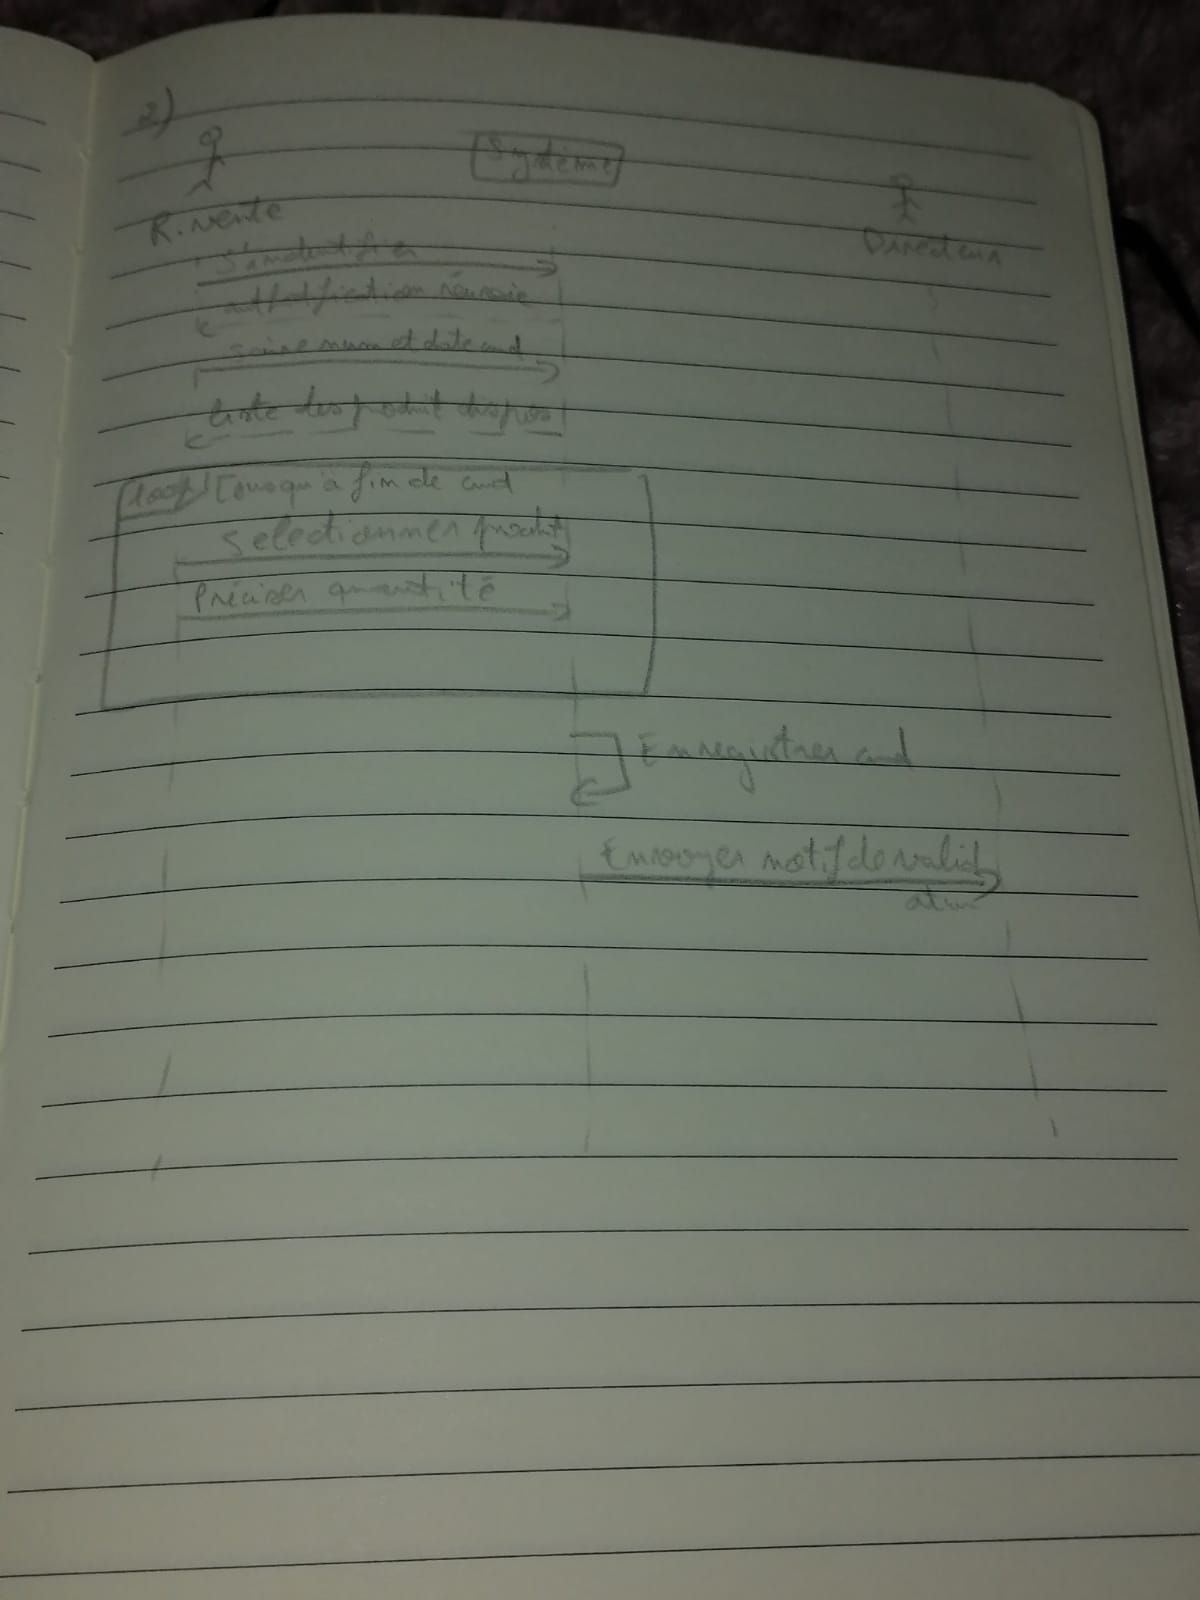 2)
Système
R. vente
Directeur
S'indentifier
authtification réussie
saisie num et date cmd
liste des produit dispos
loop [Jusqu'à fin de cmd
Selectionner produit
Préciser quantité
Enregistrer cmd
Envoyer notif de valid
ation